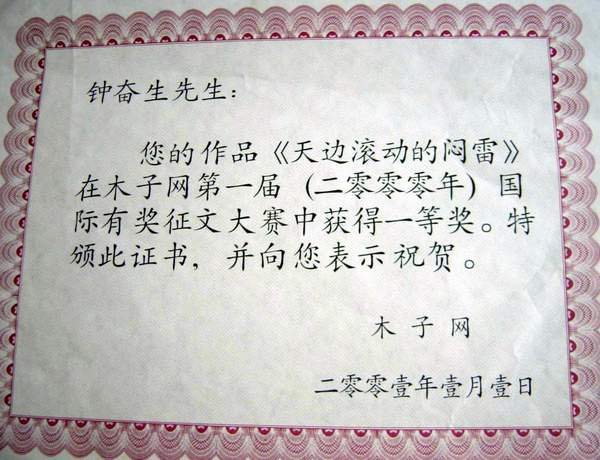 钟奋生先生：
您的作品《天边滚动的闷雷》
在木子网第一届 (二零零零年) 国
际有奖征文大赛中获得一等奖。特
颁此证书，并向您表示祝贺。
木子网
二零零壹年壹月壹日